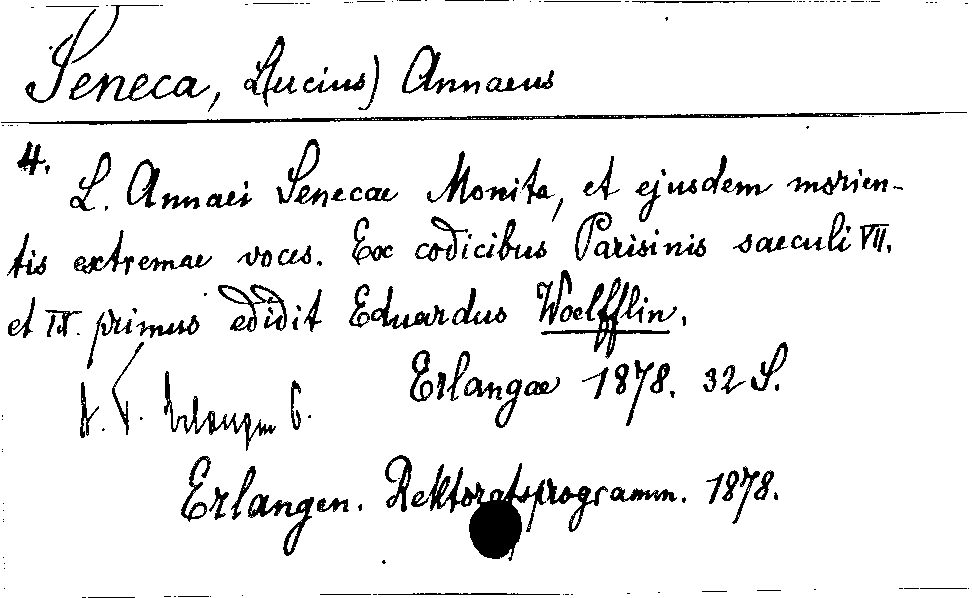 Seneca, L(ucius) Annaeus
4.
L. Annaei Senecae Monita, et ejusdem morien-
tis extremae voces. Ex codicibus Parisinis saeculi VII.
et IX. primus edidit Eduardus Woelfflin.
Erlangae 1878. 32 S.
Erlangen 6.
Erlangen. Rektoratsprogramm. 1878.